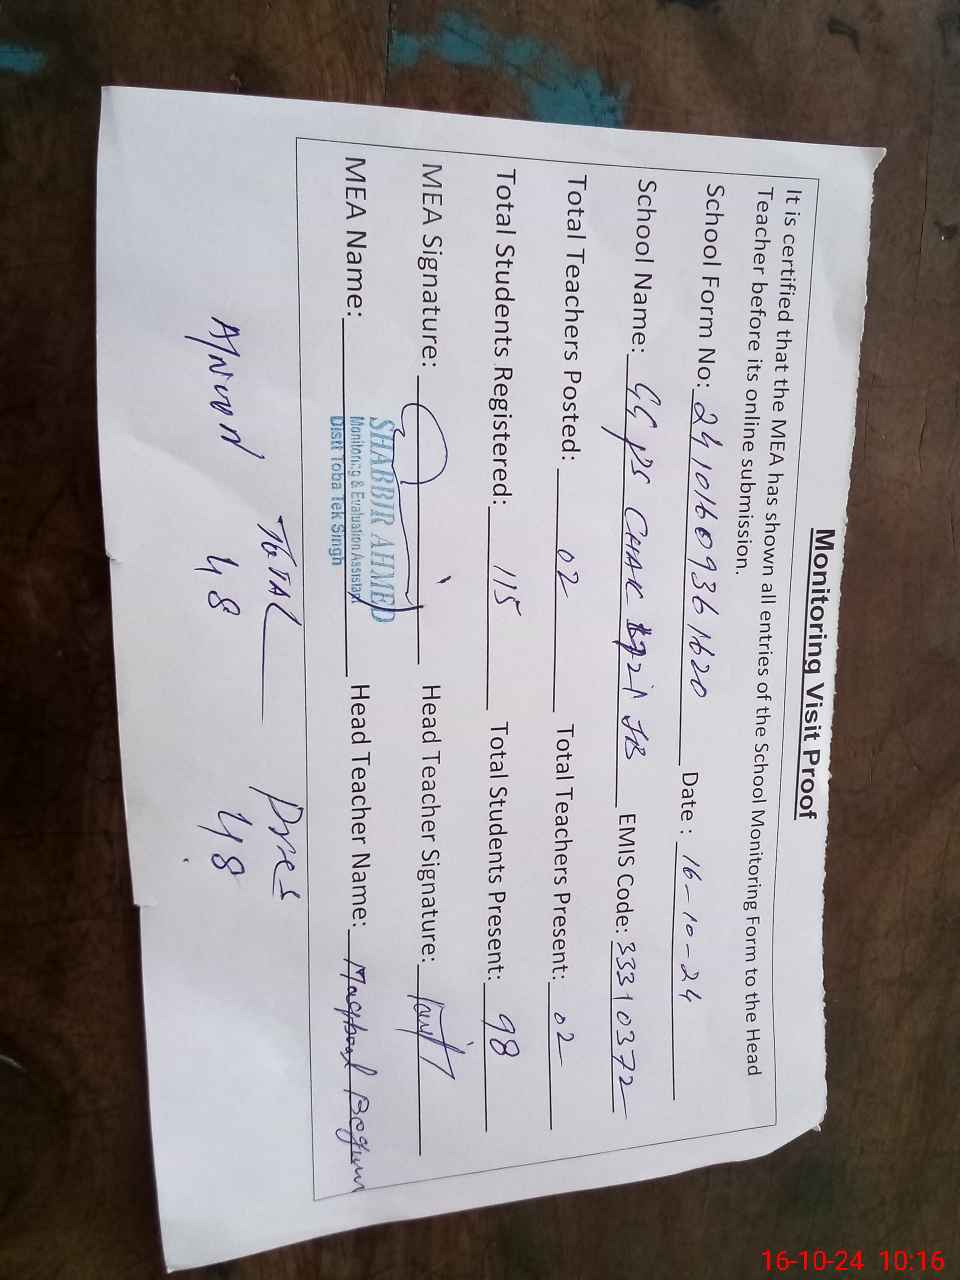 Monitoring Visit Proof
It is certified that the MEA has shown all entries of the School Monitoring Form to the Head
Teacher before its online submission.
School Form No: 24101609361620 Date : 16-10-24
School Name: GGPS CHAK 721 JB EMIS Code: 33310372
Total Teachers Posted: 02 Total Teachers Present: 02
Total Students Registered: 115 Total Students Present: 98
MEA Signature: Head Teacher Signature:
SHABBIR AHMED
Monitoring & Evaluation Assistant
Distt Toba Tek Singh
MEA Name: Head Teacher Name: Maqbool Begum
TOTAL Pres
48 48
16-10-24 10:16